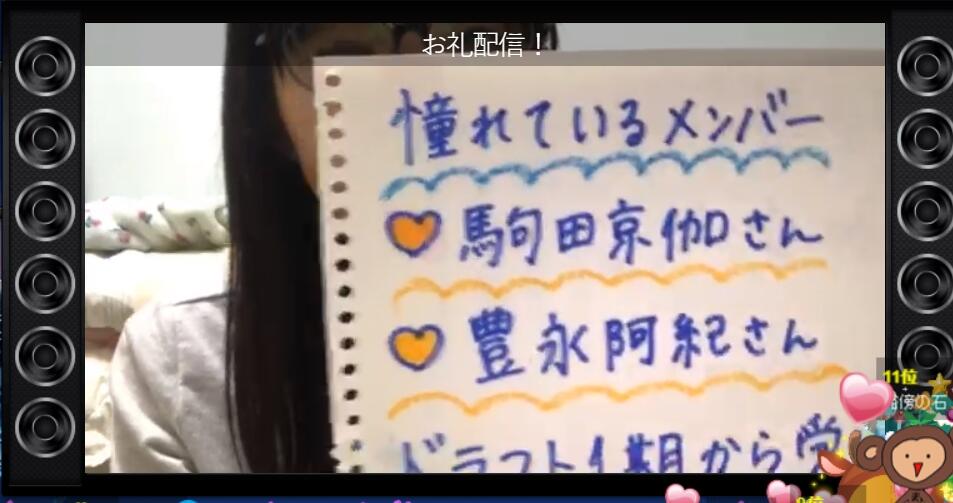 お礼配信！
憧れているメンバー
馬句田京伽さん
豊永阿紀さん
ドラフト1期から
11位
傍の石
9位